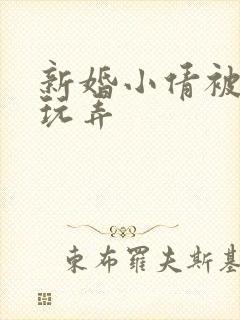 新婚小倩被
玩弄
東布羅夫斯基